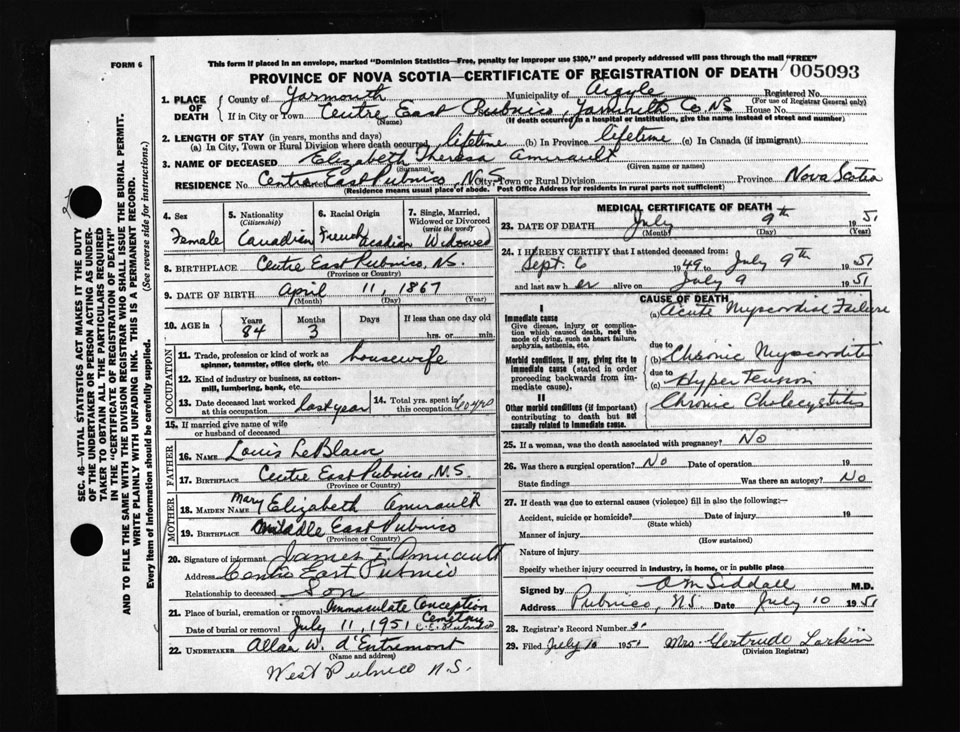 FORM 6
This form if placed in an envelope, marked "Dominion Statistics—Free, penalty for improper use $300," and properly addressed will pass through the mail "FREE"
PROVINCE OF NOVA SCOTIA—CERTIFICATE OF REGISTRATION OF DEATH 005093
1. PLACE OF DEATH
County of Yarmouth Municipality of Argyle Registered No.
(For use of Registrar General only)
If in City or Town Centre East Pubnico, Yarmouth Co. N.S. House No.
(Name) (If death occurred in a hospital or institution, give the name instead of street and number)
2. LENGTH OF STAY (in years, months and days)
(a) In City, Town or Rural Division where death occurred lifetime (b) In Province lifetime (c) In Canada (if immigrant)
3. NAME OF DECEASED Elizabeth Theresa Amirault
(Surname) (Given name or names)
RESIDENCE No. Centre East Pubnico, N.S. City, Town or Rural Division Province Nova Scotia
(Residence means usual place of abode. Post Office Address for residents in rural parts not sufficient)
4. Sex
Female
5. Nationality
(Citizenship)
Canadian
6. Racial Origin
French Acadian
7. Single, Married, Widowed or Divorced
(write the word)
Widowed
8. BIRTHPLACE Centre East Pubnico, N.S.
(Province or Country)
9. DATE OF BIRTH April 11, 1867
(Month) (Day) (Year)
10. AGE in
Years Months Days If less than one day old
84 3 hrs. or min.
OCCUPATION
11. Trade, profession or kind of work as spinner, teamster, office clerk, etc. housewife
12. Kind of industry or business, as cotton-mill, lumbering, bank, etc.
13. Date deceased last worked at this occupation last year
14. Total yrs. spent in this occupation 60 yrs
15. If married give name of wife or husband of deceased
FATHER
16. NAME Louis LeBlanc
17. BIRTHPLACE Centre East Pubnico, N.S.
(Province or Country)
MOTHER
18. MAIDEN NAME Mary Elizabeth Amirault
19. BIRTHPLACE Middle East Pubnico
(Province or Country)
20. Signature of informant James E. Amirault
Address Centre East Pubnico
Relationship to deceased Son
21. Place of burial, cremation or removal Immaculate Conception Cemetery
Date of burial or removal July 11, 1951 C.E. Pubnico
22. UNDERTAKER Allan W. d'Entremont
(Name and address)
West Pubnico N.S.
MEDICAL CERTIFICATE OF DEATH
23. DATE OF DEATH July 9th 1951
(Month) (Day) (Year)
24. I HEREBY CERTIFY that I attended deceased from:
Sept. 6 1949 to July 9th 1951
and last saw her alive on July 9 1951
CAUSE OF DEATH
I
Immediate cause
Give disease, injury or complication which caused death, not the mode of dying, such as heart failure, asphyxia, asthenia, etc.
(a) Acute Myocardial Failure
due to
Morbid conditions, if any, giving rise to immediate cause (stated in order proceeding backwards from immediate cause).
(b) Chronic Myocarditis
due to
(c) Hypertension
II
Other morbid conditions (if important) contributing to death but not causally related to immediate cause.
Chronic Cholecystitis
25. If a woman, was the death associated with pregnancy? No
26. Was there a surgical operation? No Date of operation 19
State findings Was there an autopsy? No
27. If death was due to external causes (violence) fill in also the following:—
Accident, suicide or homicide? Date of injury 19
(State which)
Manner of injury
(How sustained)
Nature of injury
Specify whether injury occurred in industry, in home, or in public place
Signed by O M Siddall M.D.
Address Pubnico, N.S. Date July 10 1951
28. Registrar's Record Number 31
29. Filed July 10 1951 Mrs. Gertrude Larkin
(Division Registrar)
SEC. 46—VITAL STATISTICS ACT MAKES IT THE DUTY OF THE UNDERTAKER OR PERSON ACTING AS UNDERTAKER TO OBTAIN ALL THE PARTICULARS REQUIRED IN THE "CERTIFICATE OF REGISTRATION OF DEATH" AND TO FILE THE SAME WITH THE DIVISION REGISTRAR WHO SHALL ISSUE THE BURIAL PERMIT.
WRITE PLAINLY WITH UNFADING INK. THIS IS A PERMANENT RECORD.
Every item of Information should be carefully supplied. (See reverse side for instructions.)